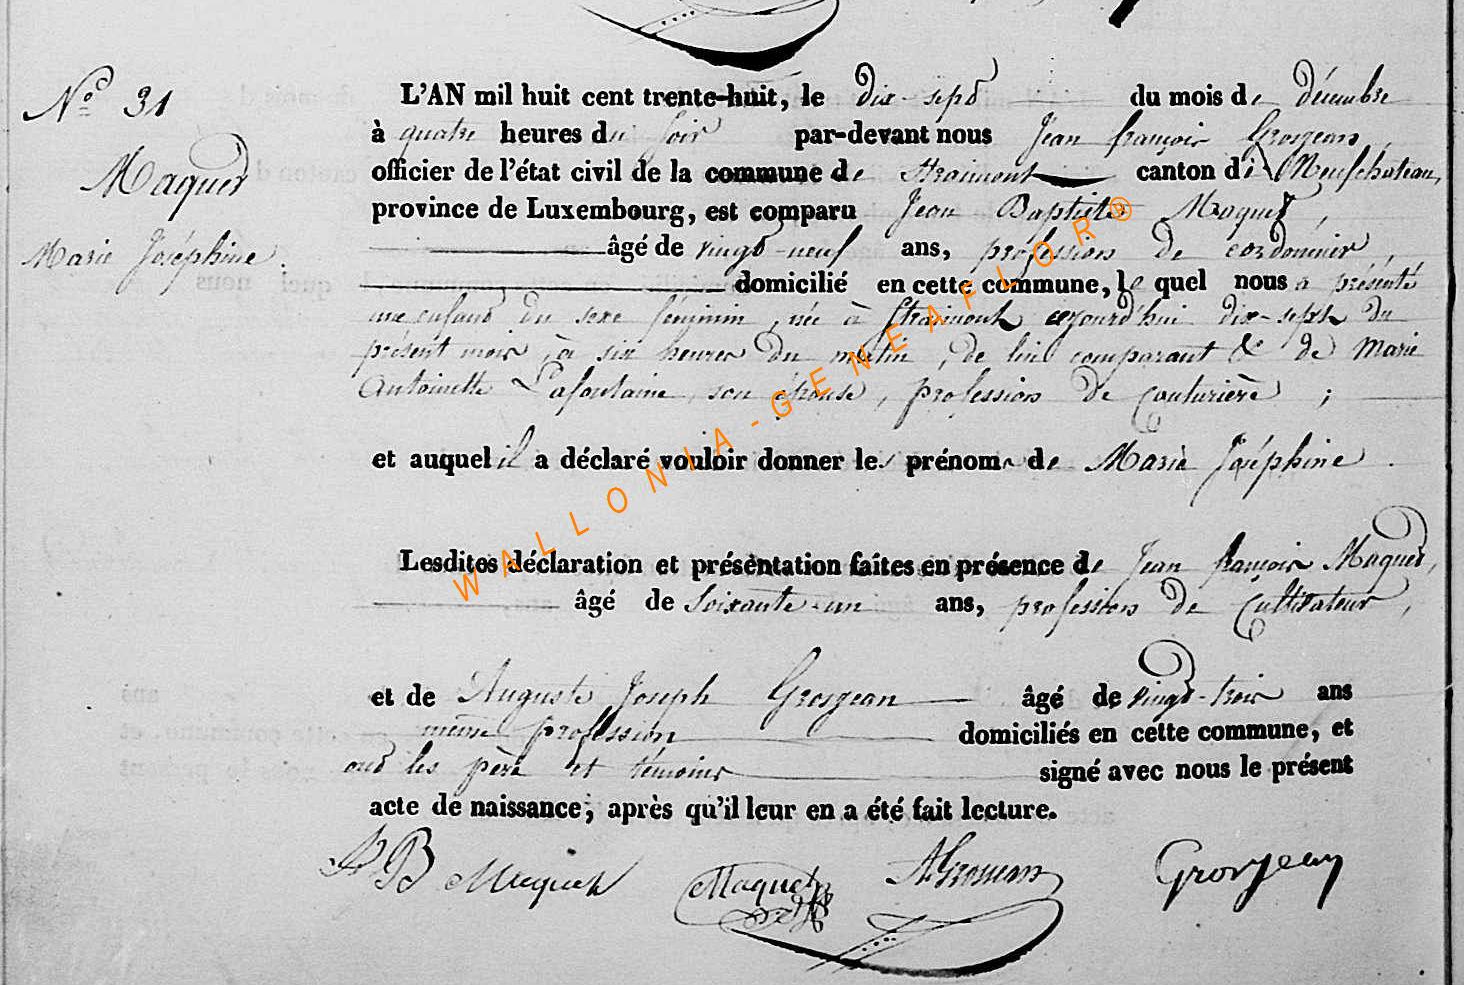 N° 31
Maquet
Marie Joséphine.
L'AN mil huit cent trente-huit, le dix-sept du mois de décembre
à quatre heures du soir par-devant nous Jean françois Grosjean,
officier de l'état civil de la commune de Straimont canton de Neufchateau,
province de Luxembourg, est comparu Jean Baptiste Maquet,
âgé de vingt-neuf ans, profession de cordonnier,
domicilié en cette commune, le quel nous a présenté
une enfant du sexe féminin, née à Straimont aujourd'hui dix-sept du
présent mois, à six heures du matin, de lui comparant & de Marie
Antoinette Lafontaine, son épouse, profession de Couturière ;
et auquel il a déclaré vouloir donner les prénoms de Marie Joséphine.
Lesdites déclaration et présentation faites en présence de Jean françois Maquet,
âgé de Soixante-un ans, profession de Cultivateur,
et de Auguste Joseph Grosjean âgé de vingt-trois ans
même profession domiciliés en cette commune, et
ont les père et témoins signé avec nous le présent
acte de naissance, après qu'il leur en a été fait lecture.
JB Maquet Maquet AGrosjean Grosjean
WALLONIA-GENEAFLOR®